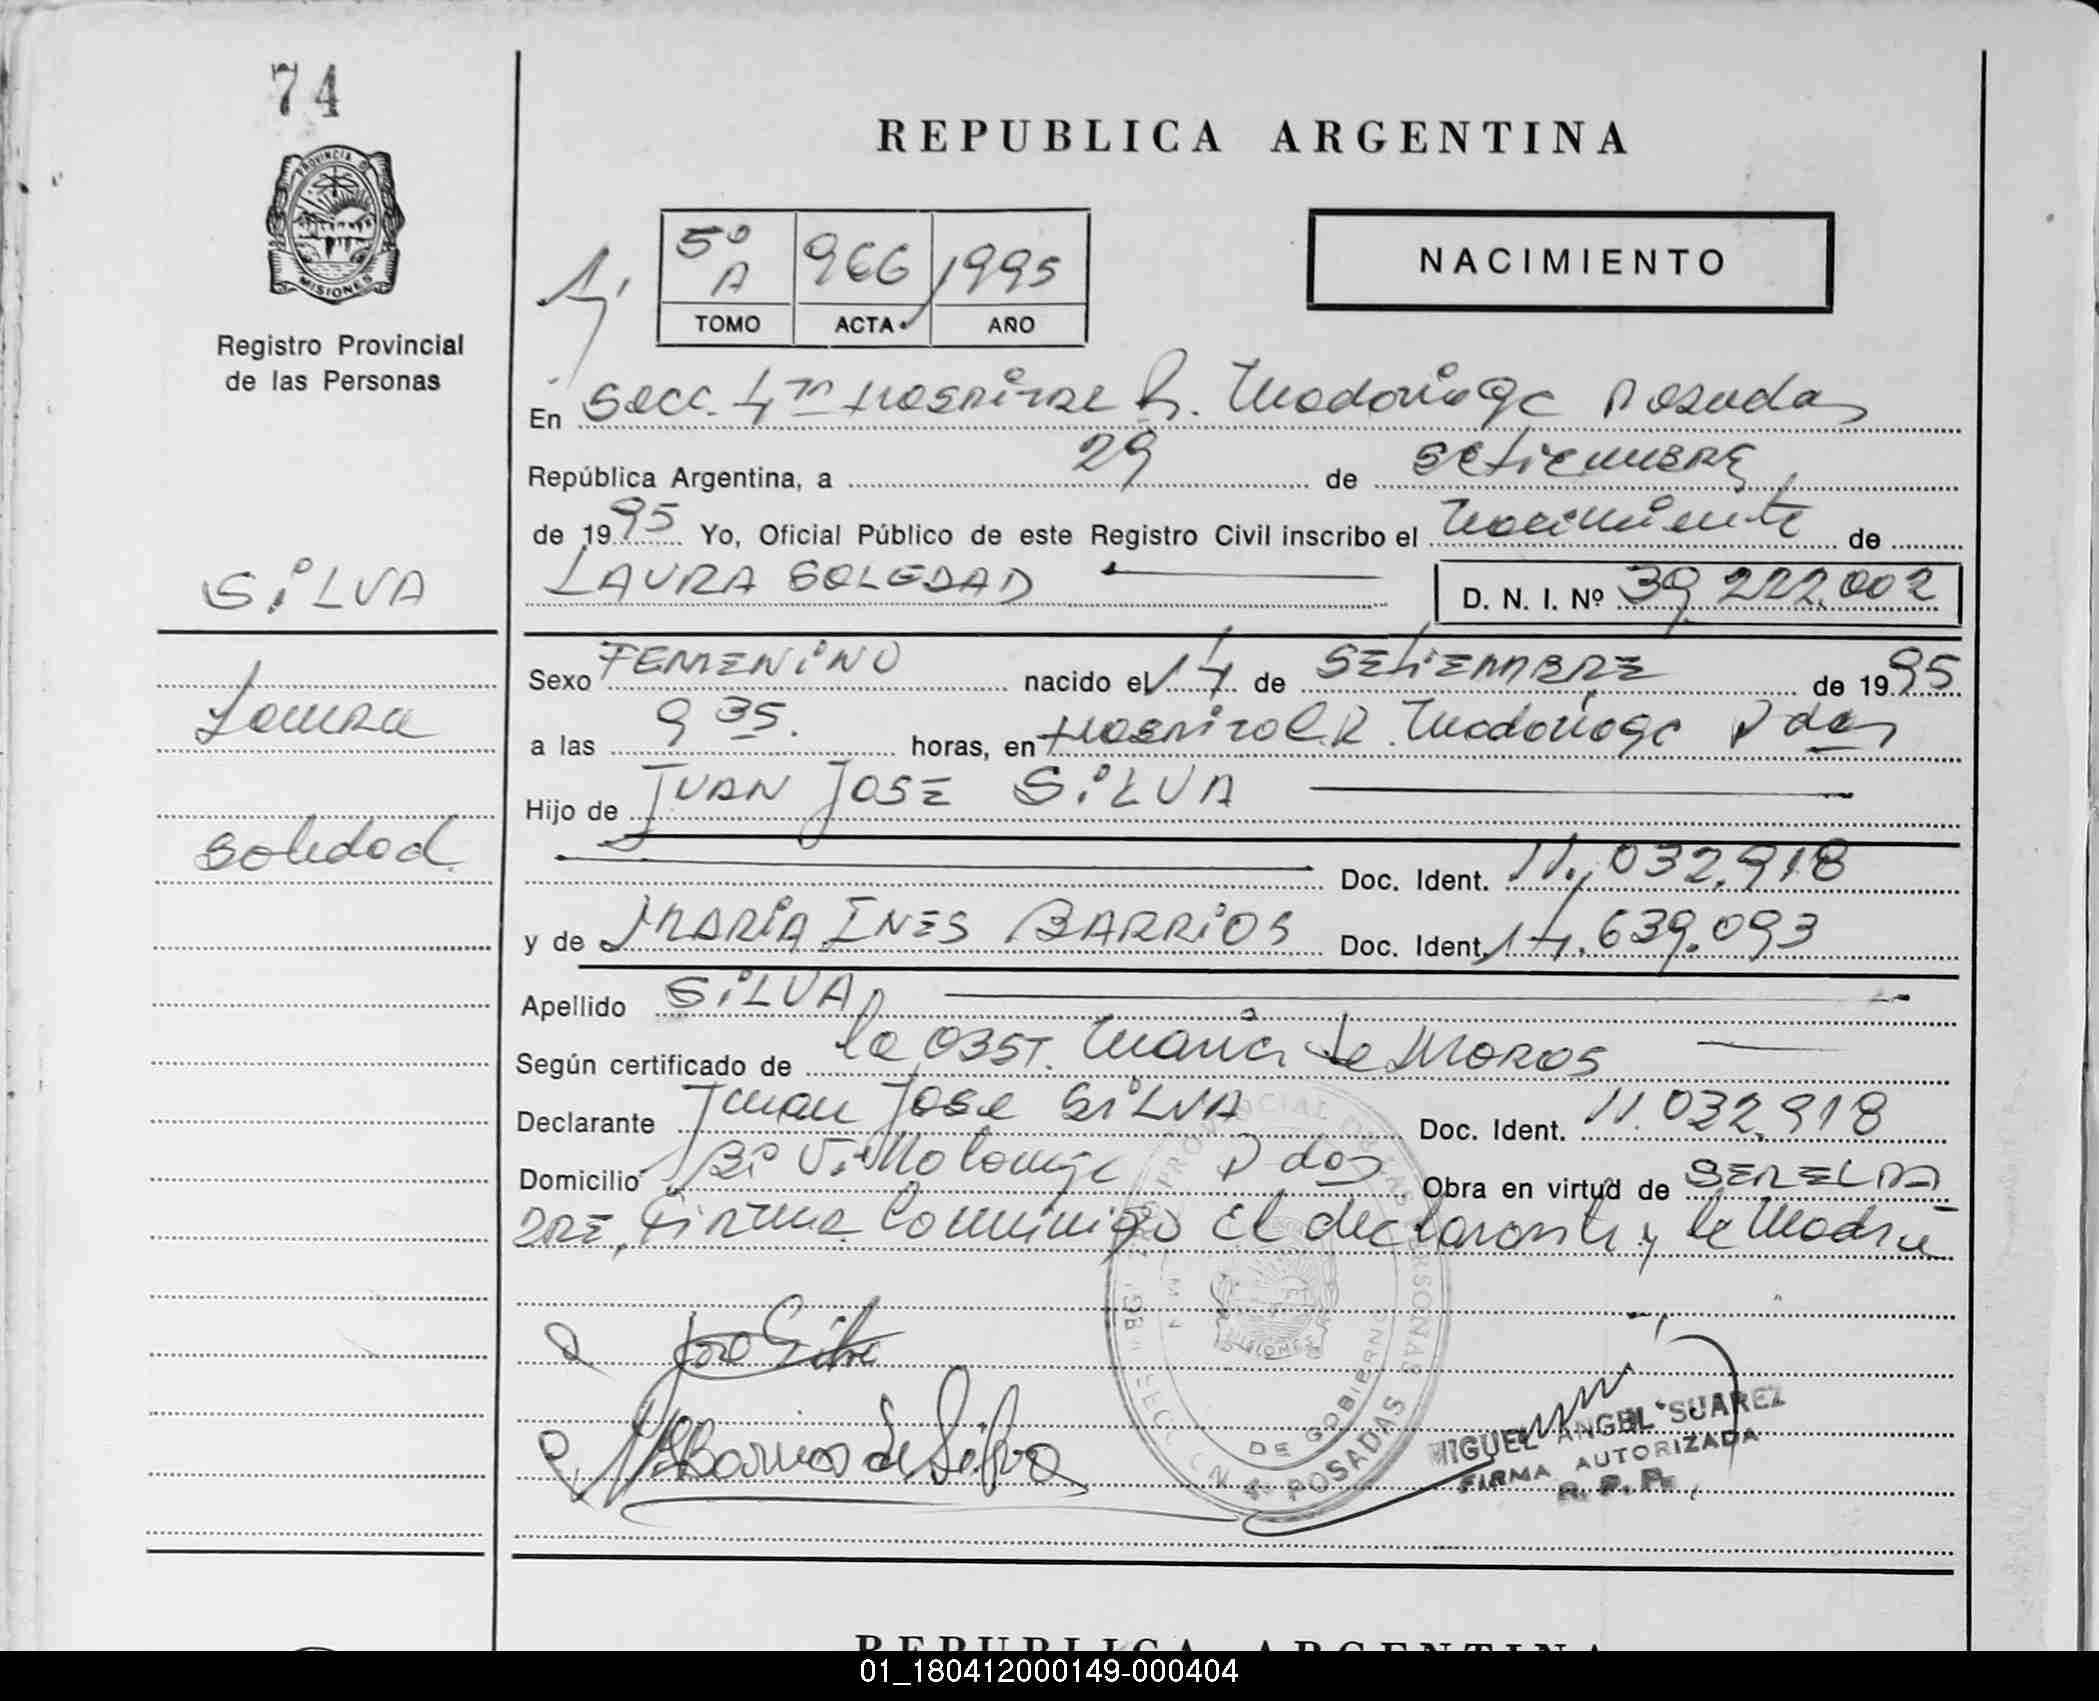 74
PROVINCIA DE
MISIONES
Registro Provincial
de las Personas
SiLVA
Laura
Soledad
REPUBLICA ARGENTINA
5º A 966 1995
TOMO ACTA AÑO
NACIMIENTO
En Secc. 4ta Hospital R. Madariaga Posadas
República Argentina, a 29 de Setiembre
de 1995 Yo, Oficial Público de este Registro Civil inscribo el Nacimiento de
LAURA SOLEDAD D. N. I. Nº 39.222.002
Sexo FEMENiNO nacido el 14 de SEtiEMBRE de 1995
a las 9 35. horas, en Hospital R. Madariaga Pdas
Hijo de JUAN JOSE SiLVA
Doc. Ident. 11.032.918
y de MARiA INES BARRiOS Doc. Ident. 14.639.093
Apellido SiLVA
Según certificado de la OBST. Maria de MOROS
Declarante Juan Jose SiLVA Doc. Ident. 11.032.918
Domicilio Bº V. Pdas Obra en virtud de SER EL PA
DRE, Firma Conmigo el declarante y la Madre
José Silva
MIBarrios de Silva
PROVINCIAL DE LAS PERSONAS
MISIONES
DE GOBIERNO
POSADAS
MIGUEL ANGEL SUAREZ
FIRMA AUTORIZADA
R. P. P.
REPUBLICA ARGENTINA
01_180412000149-000404